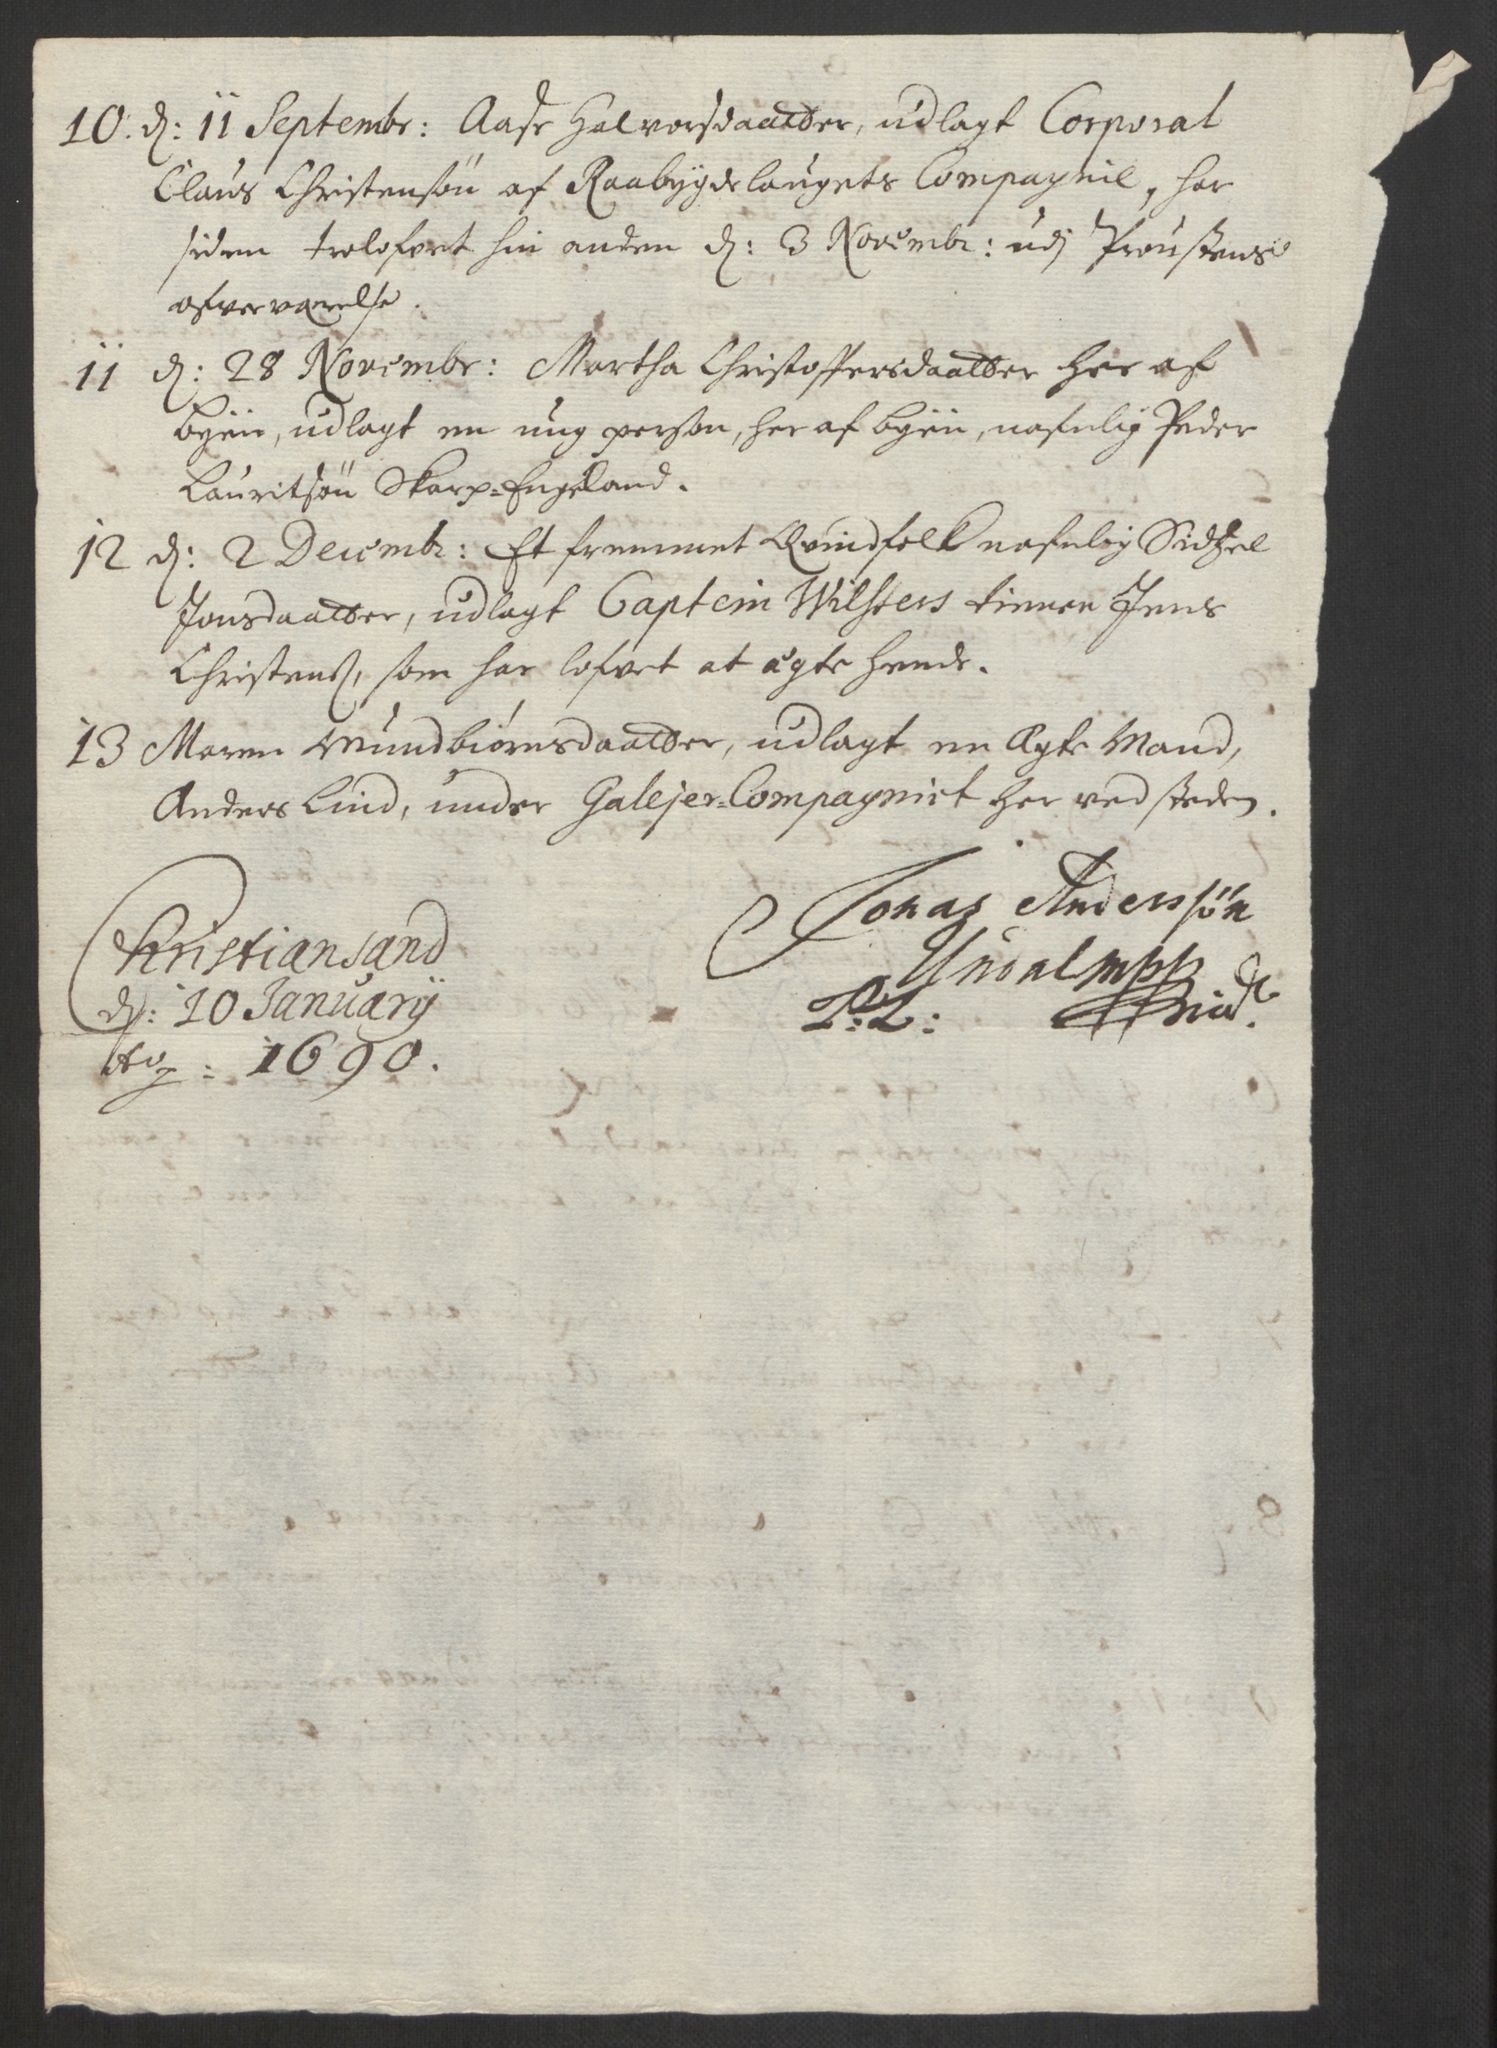 10. d: 11 Septembr: Aase Halvorsdaatter, udlagt Corporal
Claus Christensøn af Raabygdelaugets Compagnie, har
siden trolofvet hin anden d: 3 Novembr: udj Proustens
ofververelse.
11 d: 28 Novembr: Martha Christoffersdaatter her af
byen, udlagt en ung person, her af byen, nafnlig Peder
Lauritsøn Skarp=Engeland.
12 d: 2 Decembr: Et fremmet Qvindfolk nafnlig Sidzel
Jonsdaatter, udlagt Captein Wilsters tienner Jens
Christens, som har lofvet at ægte hende.
13 Maren Mundbiørnsdaatter, udlagt en Ægte Mand,
Anders Lind, under Galejer=Compagniet her ved steden.
Jonas Andersøn
Christiansand
d: 10 January
Ao: 1690.